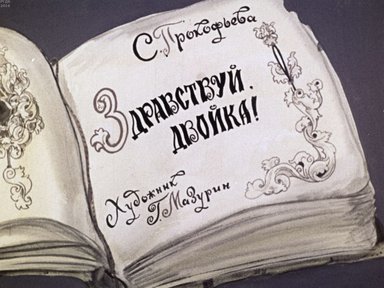 С. Прокофьева
Здравствуй,
двойка!
Художник
Г. Мазурин